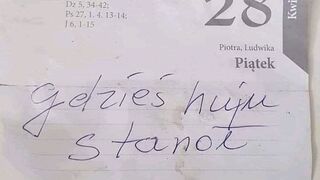 Dz 5, 34-42;
Ps 27, 1. 4. 13-14;
J 6, 1-15
28
Kwi
Piotra, Ludwika
Piątek
gdzieś huju
stanoł